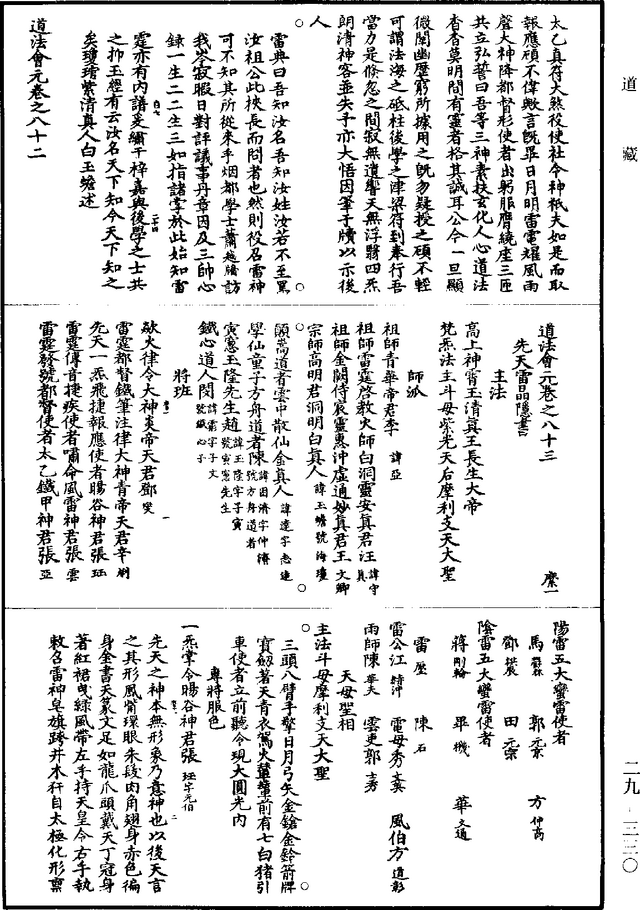 道藏
太乙真符大煞役使社令神祇夫如是而取
報應碩不偉歟言既畢日月明雷電耀風雨
聲大神降都督形使者出躬服膺繞座三匝
共立弘誓曰吾等三神素扶玄化人心道法
杳杳莫明間有靈者格其誠耳公今一旦顯
微闡幽歷窮所據用之既勿疑授之碩不輕
可謂法海之砥柱後學之津梁符到奉行吾
當力是倏忽之間寂無遺響天無浮翳四炁
朗清神客並失予亦大悟因筆于牘以示後
人
雷典曰吾知汝名吾知汝姓汝若不至黑
汝祖公此挾長而問者也然則役召雷神
可不知其所從來乎烟都學士蕭越騰訪
我岑寂暇日對評議事丹章因及三帥心
錄一生二二生三如指諸掌於此始知雷
霆亦有內譜爰繡于梓嘉與後學之士共
之抑玉經有云汝名天下知今天下知之
矣瓊琯紫清真人白玉蟾述
道法會元卷之八十二
道法會元卷之八十三
先天雷晶隱書
主法
高上神霄玉清真王長生大帝
梵炁法主斗母紫光天后摩利支天大聖
師派
祖師青華帝君李 諱亞
祖師雷霆啓教火師白洞靈安真君汪 諱守真
祖師金闕侍宸靈惠沖虛通妙真君王 文卿
宗師高明君洞明白真人 諱玉蟾號海瓊
頤濤道者雲中散仙金真人 諱達字志遠
學仙童子方舟道者陳 諱因濟字仲濟號方舟道者
寅憲玉隆先生趙 諱玉隆字子寅號寅憲先生
鐵心道人閔 諱霨字子文號鐵心子
將班
歘火律令大神炎帝天君鄧 燮
雷霆都督鐵筆注律大神青帝天君辛 漢臣
先天一炁飛捷報應使者暘谷神君張 珏
雷霆傳音捷疾使者嘯命風雷神君張 雲
雷霆發號都督使者太乙鐵甲神君張 亞
陽雷五大蠻雷使者
馬 鬱林 郭 元京 方 仲高
鄧 拱辰 田 元宗
陰雷五大蠻雷使者
蔣 剛輪 畢 機 華 文通
雷壓 陳石
雷公江 赫沖 電母秀 文英 風伯方 道彰
雨師陳 華夫 雲吏郭 士秀
天母聖相
主法斗母摩利支天大聖
三頭八臂手擎日月弓矢金鎗金鈴箭牌
寶劍著天青衣駕火輦輦前有七白猪引
車使者立前聽令現大圓光內
專將服色
一炁掌令暘谷神君張 珏字元伯
先天之神本無形象乃意神也以後天言
之其形鳳觜環眼朱髮肉角翅身赤色徧
身金書天篆文足如龍爪頭戴天丁冠身
著紅裙曳綠風帶左手持天皇令右手執
敕召雷神皂旗跨井木犴自太極化形稟
二九－三三〇